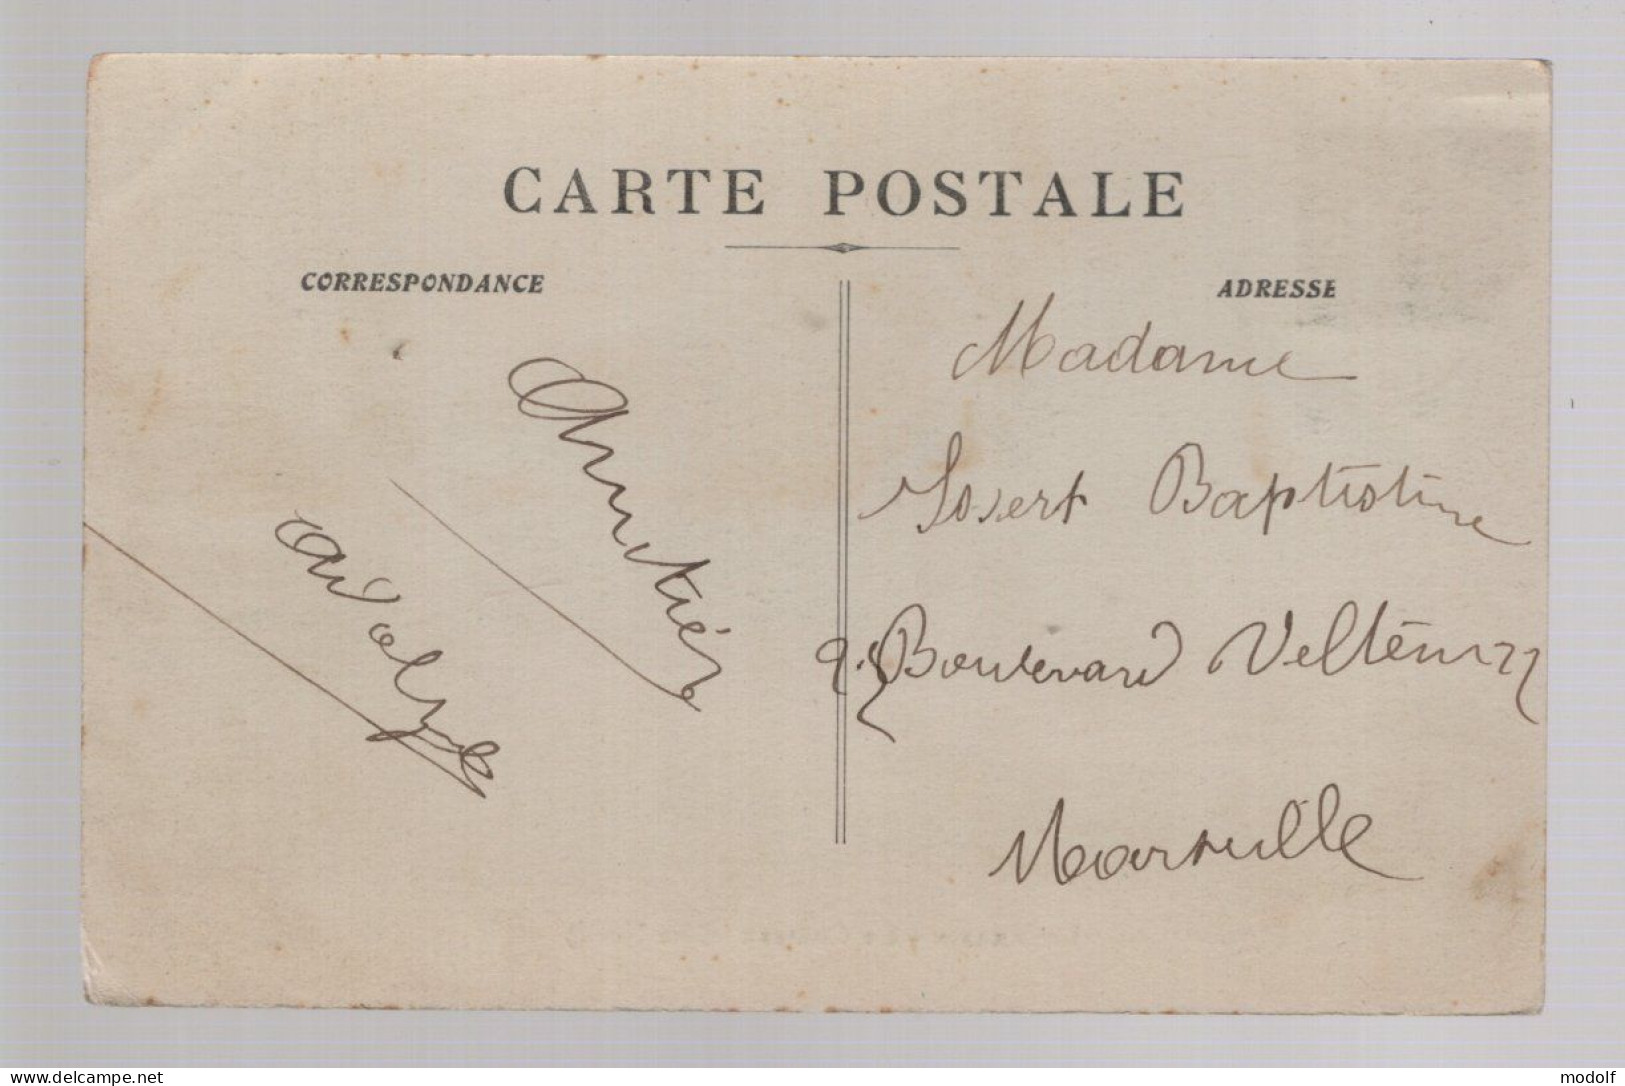 CARTE POSTALE
CORRESPONDANCE
ADRESSE
Amitiés
Adolphe
Madame
Baptistine
Boulevard
Marseille
www.delcampe.net
modolf